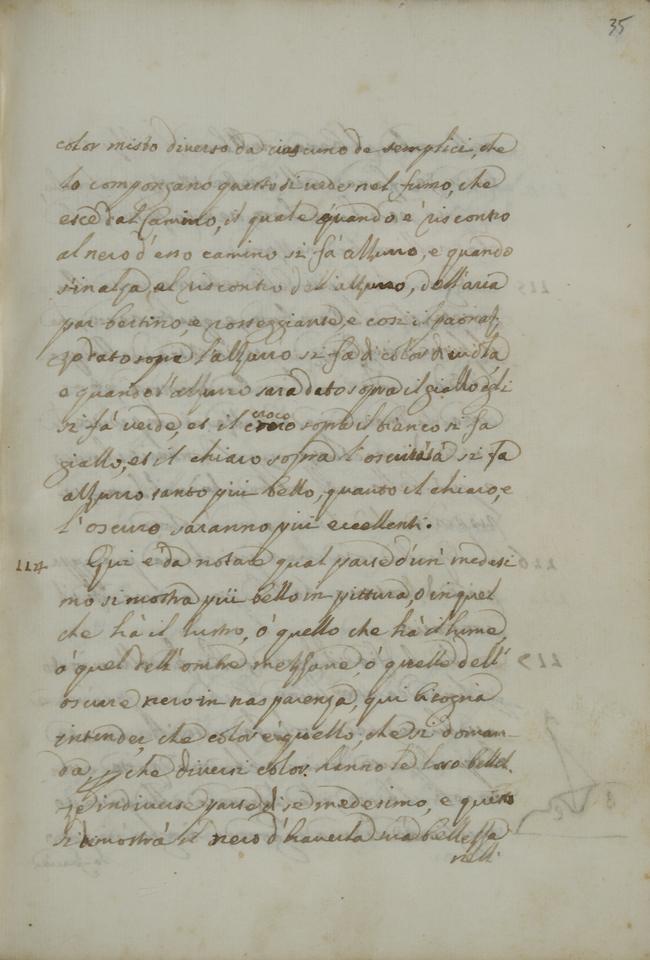 35
color misto diverso da ciascuno de semplici, che
lo compongano questo si vede nel fumo, che
esce dal Camino, il quale quando è riscontro
al nero d'esso camino si fà azzurro, e quando
s'inalza al riscontro dell'azzurro, dell'aria
par bertino, e rosseggiante, e così il paonaz,
zo dato sopra l'azzurro si fà di color di viola
e quando l'azzurro sarà dato sopra il giallo egli
si fà verde, et il croco sopra il bianco si fa
giallo, et il chiaro sopra l'oscurità si fa
azzurro tanto più bello, quanto il chiaro, e
l'oscuro saranno più eccellenti.
114 Qui è da notare qual parte d'un medesi
mo si mostra più bello in pittura, o in quel
che hà il lustro, ò quello che hà il lume,
ò quel dell'ombre mezzane, ò quelle dell'
oscure nero in trasparenza, qui bisogna
intender, che color è quello, che si doman
da, perche diversi color. hanno le loro bellez.
ze in diverse parte di se medesimo, e questo
si dimostrà il nero d'haverla sua bellezza
nell'